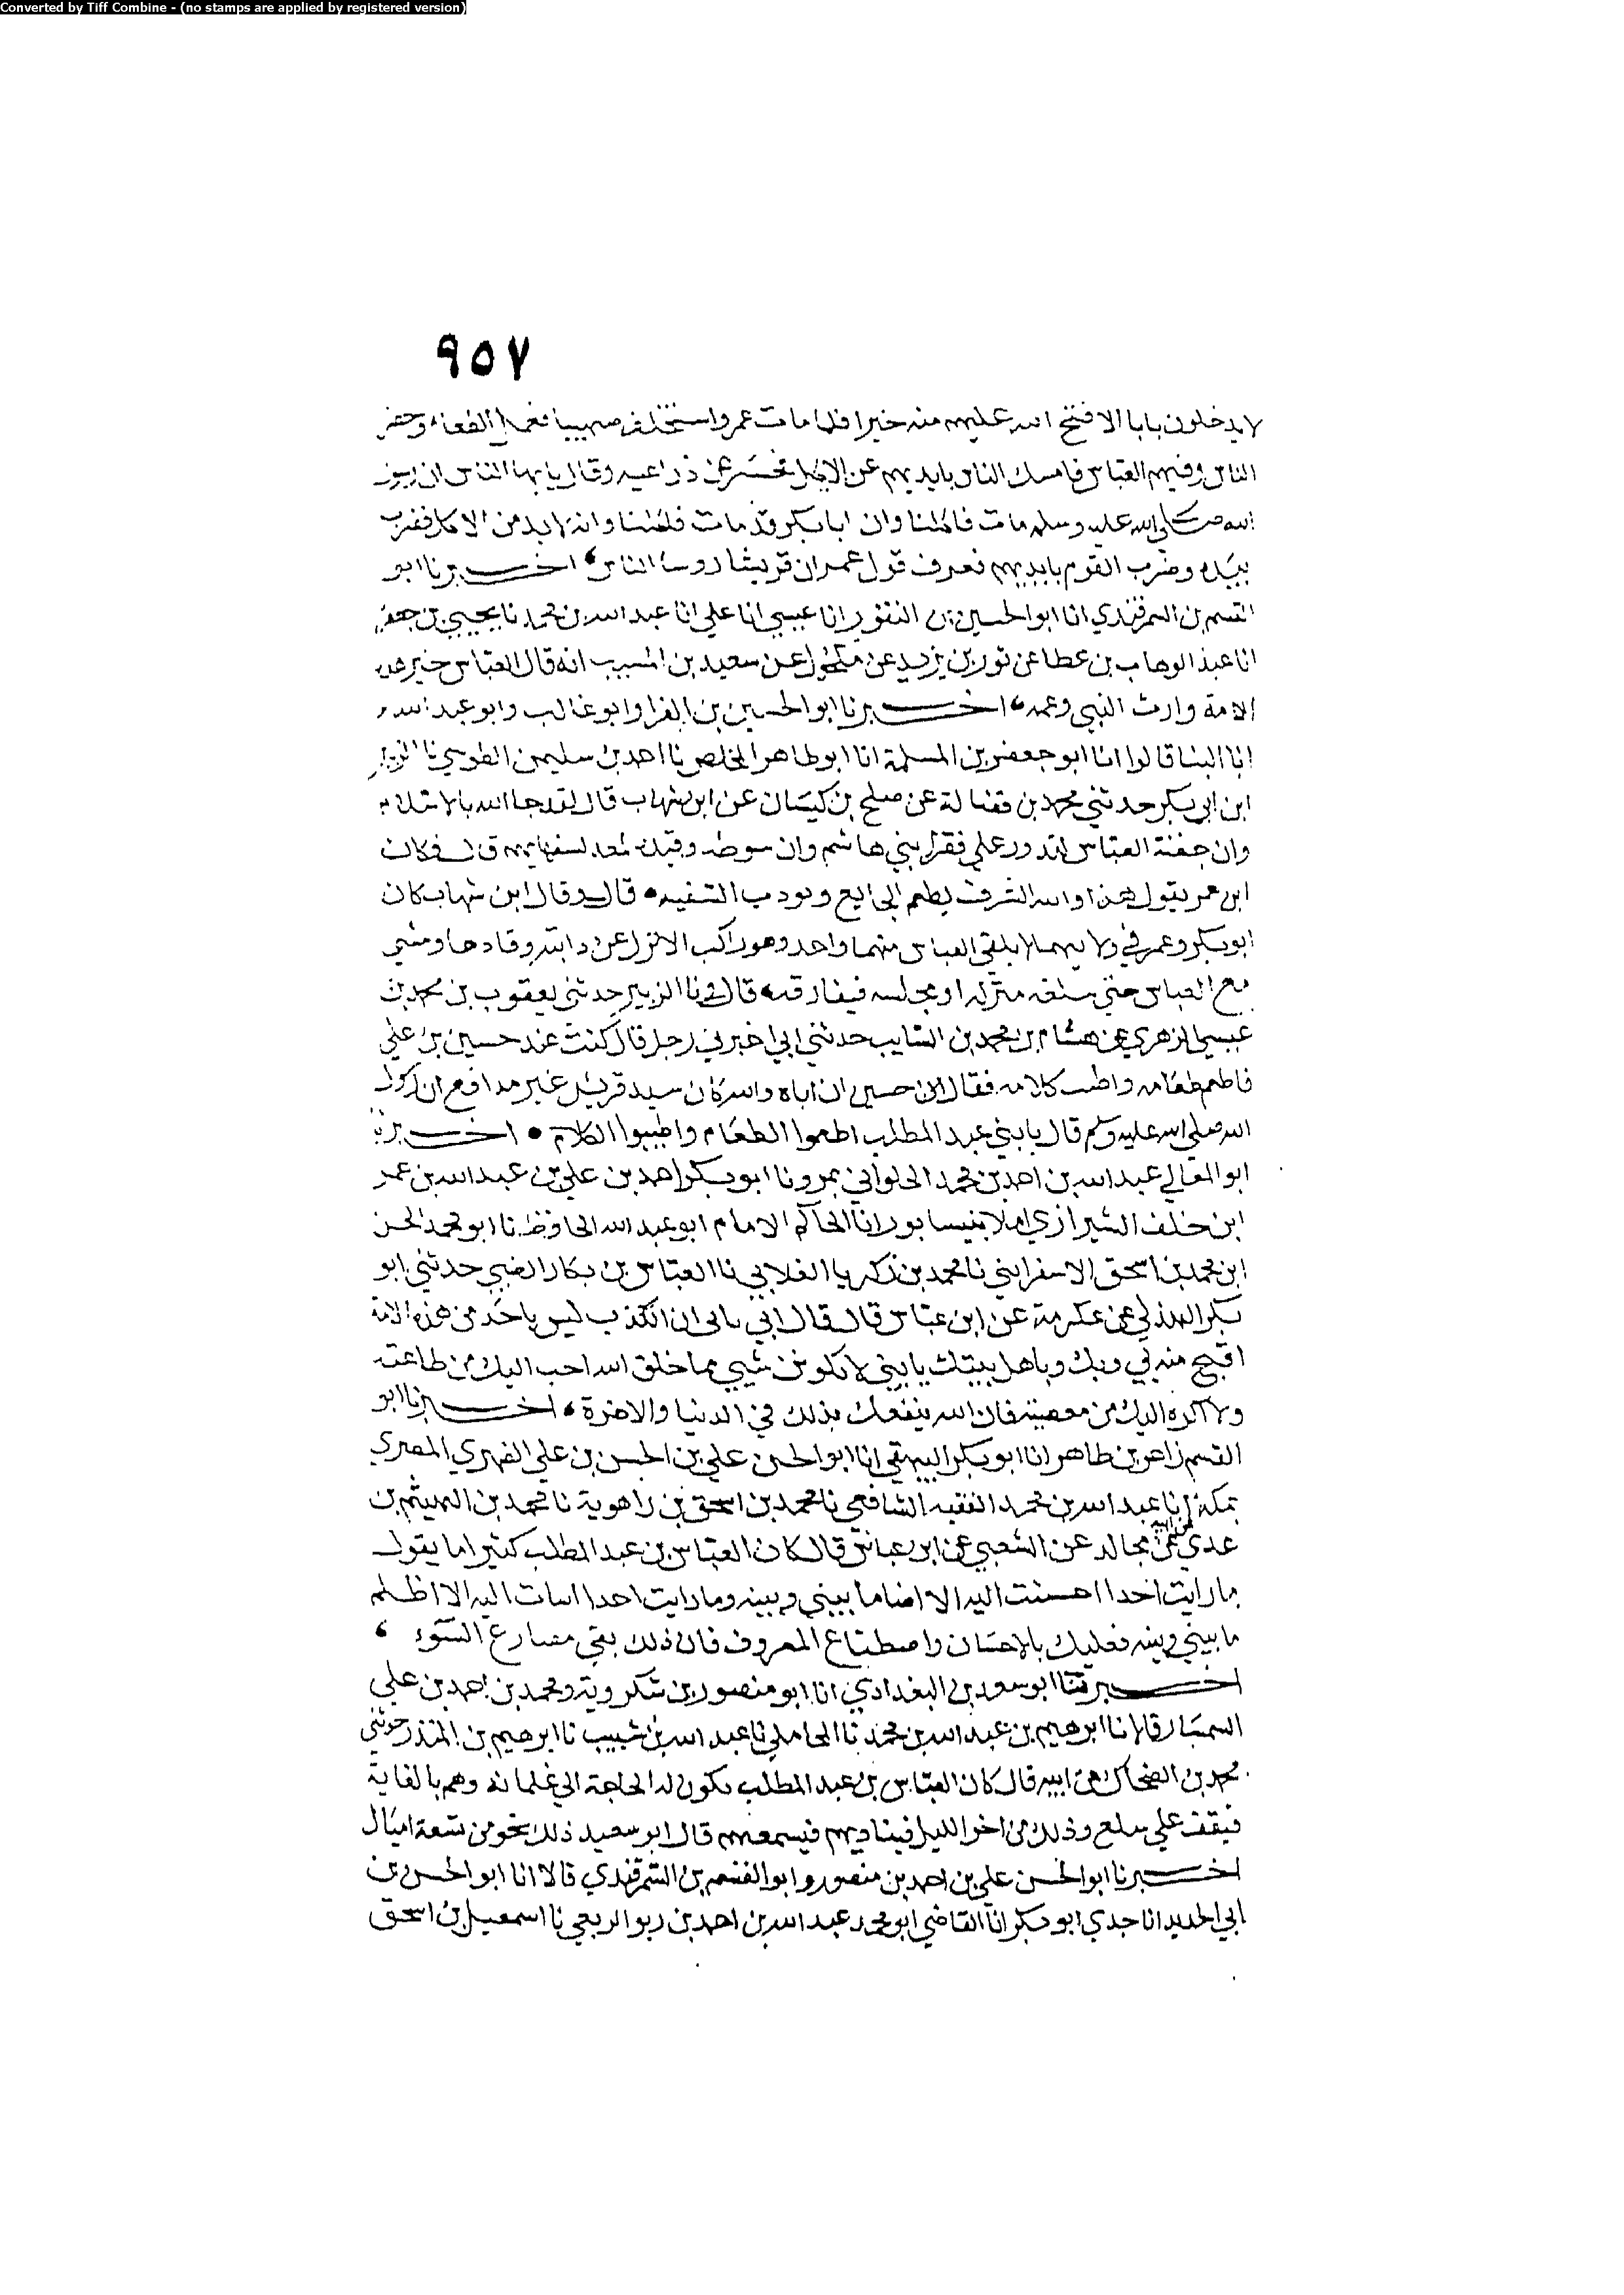 Converted by Tiff Combine - (no stamps are applied by registered version)
٩٥٧
لا يدخلون بابا الا فتح الله عليهم منه خيرا فلما مات عمر واستخلف صهيبا وحضر
الناس وفيهم العباس فامسك الناس بايديهم عن الاكل فحسر عن ذراعيه وقال يا يها الناس ان رسول
الله صلى الله عليه وسلم مات فاكلنا وان ابا بكر قد مات فاكلنا وانه لا بد من الاكل فضرب
بيده وضرب القوم بايديهم فعرف قول عمر ان قريشا روسا الناس اخبرنا ابو
القسم بن السمرقندي انا ابو الحسين بن النقور انا عيسى انا علي انا عبد الله بن محمد نا يحيى بن جعفر
انا عبد الوهاب بن عطا عن ثور بن يزيد عن مكحول عن سعيد بن المسيب انه قال العباس خير هذه
الامة وارث النبي وعمه اخبرنا ابو الحسين بن الفرا وابو غالب وابو عبد الله
انا البنا قالوا انا ابو جعفر بن المسلمة انا ابو طاهر المخلص نا احمد بن سليمن الطوسي نا الزبير
ابن ابي بكر حدثني محمد بن فضالة عن صلح بن كيسان عن ابن شهاب قال لقد جا الله بالاسلام
وان جفنة العباس لتدور على فقرا بني هاشم وان سوطه وقيده معد لسفهايهم قال فكان
ابن عمر يقول هذا والله الشرف يطعم الجايع ويودب السفيه قال وقال ابن شهاب كان
ابو بكر وعمر في ولا يتهما لا يلقى العباس منهما واحد وهو راكب الا نزل عن دابته وقادها ومشى
مع العباس حتى يبلغه منزله او مجلسه فيفارقه قال ونا الزبير حدثني يعقوب بن محمد بن
عيسى الزهري عن هشام بن محمد بن السايب حدثني ابي اخبرني رجل قال كنت عند حسين بن علي
فاطعم طعامه واطب كلامه فقال ابن حسين ان اباه والله كان سيد قريش غير مدافع ان رسول
الله صلى الله عليه وسلم قال يا بني عبد المطلب اطعموا الطعام واطيبوا الكلام اخبرنا
ابو المعالي عبد الله بن احمد بن محمد الحلواني بمرو نا ابو بكر احمد بن علي بن عبد الله بن عمر
ابن خلف الشيرازي املا بنيسابور انا الحاكم الامام ابو عبد الله الحافظ نا ابو محمد الحسن
ابن محمد بن اسحق الاسفرايني نا محمد بن زكريا الغلابي نا العباس بن بكار الضبي حدثني ابو
بكر الهذلي عن عكرمة عن ابن عباس قال قال ابي يا بني ان الكذب ليس باحد من هذه الامة
اقبح منه بي وبك وباهل بيتك يا بني لا يكونن شيي مما خلق الله احب اليك من طاعته
ولا اكره اليك من معصيته فان الله ينفعك بذلك في الدنيا والاخرة اخبرنا ابو
القسم زاهر بن طاهر انا ابو بكر البيهقي انا ابو الحسن علي بن الحسن بن علي الفهري المصري
بمكة انا عبد الله بن محمد الفقيه الشافعي نا محمد بن اسحق بن راهوية نا محمد بن الهيثم بن
عدي عن ابيه عن مجالد عن الشعبي عن ابن عباس قال كان العباس بن عبد المطلب كثيرا ما يقول
ما رايت احدا احسنت اليه الا اضا ما بيني وبينه وما رايت احدا اسات اليه الا اظلم
ما بيني وبينه فعليك بالاحسان واصطناع المعروف فان ذلك يقي مصارع السوء
اخبرنا ابو سعد بن البغدادي انا ابو منصور بن شكروية ومحمد بن احمد بن علي
السمسار قالا انا ابرهيم بن عبد الله بن محمد نا المحاملي نا عبد الله بن شبيب نا ابرهيم بن المنذر حدثني
محمد بن الضحاك عن ابيه قال كان العباس بن عبد المطلب تكون له الحاجة الي غلمانه وهم بالغابة
فيقف علي سلع وذلك من اخر الليل فيناديهم فيسمعهم قال ابو سعيد ذلك نحو من تسعة اميال
اخبرنا ابو الحسن علي بن احمد بن منصور وابو القسم بن السمرقندي قالا انا ابو الحسن بن
ابي الحديد انا جدي ابو بكر انا القاضي ابو محمد عبد الله بن احمد بن ربو الربعي نا اسمعيل بن اسحق